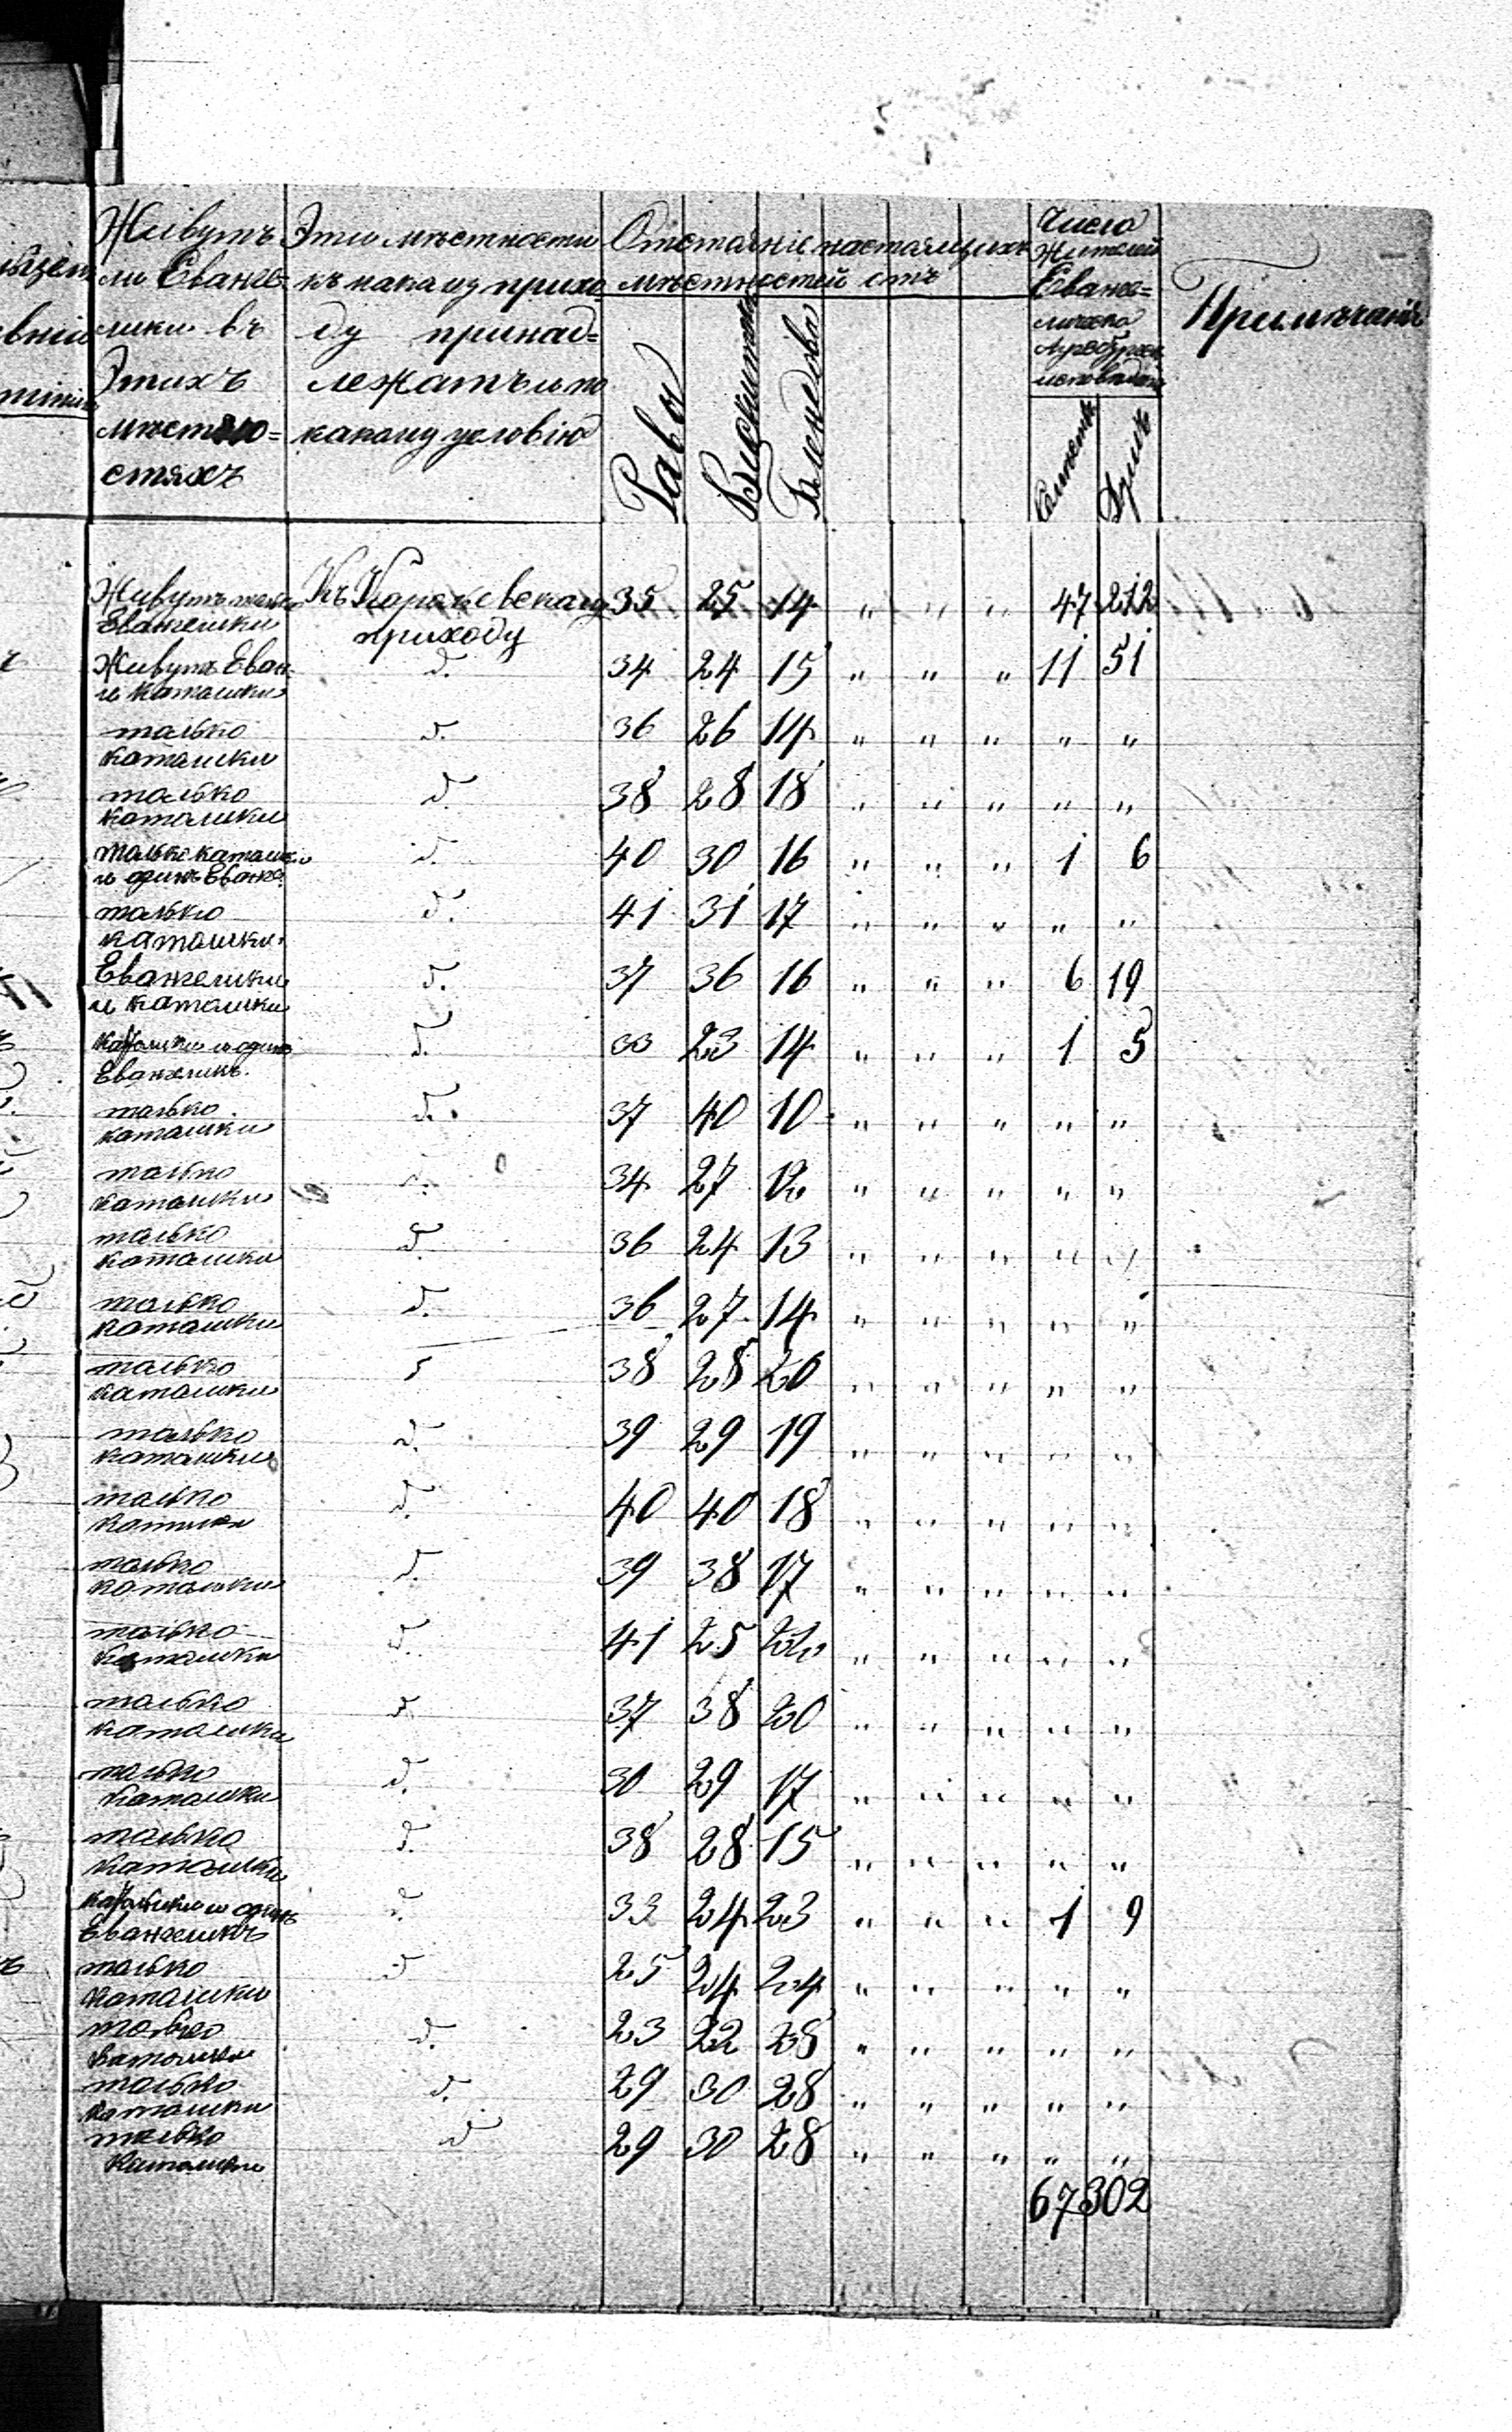 Живутъ Эти мѣстности Отстояніе настоящихъ Число
ли Еванге= къ какому прихо мѣстностей отъ жителей
лики въ ду принад= Еванге=
Этихъ лежатъ и по Примѣчанія
мѣстно= какому условію
стяхъ Рава Блендова Душъ
Живутъ Къ приходу 35 25 14 " " " 47 212
Евангелики
Живутъ Еван. д. 34 24 15 " " " 11 51
и католики
только д. 36 26 14 " " " " "
католики
только д. 38 28 18 " " " " "
католики
только католики д. 40 30 16 " " " 1 6
и одинъ Еванге.
только д. 41 31 17 " " " " "
католики.
Евангелики д. 37 36 16 " " " 6 19
и католики
католики и одинъ д. 33 23 14 " " " 1 5
Евангеликъ.
только д. 37 40 10 " " " " "
католики
только д. 34 27 12 " " " " "
католики
только д. 36 24 13 " " " " "
католики
только д. 36 27 14 " " " " "
католики
только д. 38 28 20 " " " " "
католики
только д. 39 29 19 " " " " "
католики
только д. 40 40 18 " " " " "
католики
только д. 39 38 17 " " " " "
католики
только д. 41 25 22 " " " " "
католики
только д. 37 38 20 " " " " "
католики
только д. 30 29 17 " " " " "
католики
только д. 38 28 15 " " " " "
католики
католики и одинъ д. 33 24 23 " " " 1 9
Евангеликъ
только д. 25 24 24 " " " " "
католики
только д. 23 22 28 " " " " "
католики
только д. 29 30 28 " " " " "
католики
только д. 29 30 28 " " " " "
католики
67 302